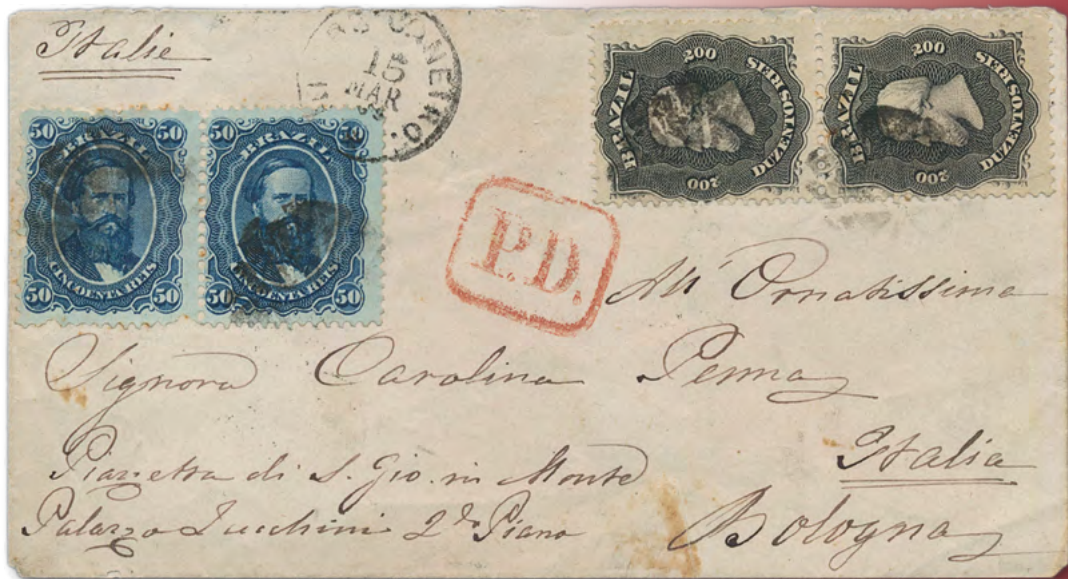 Italie
RIO JANEIRO.
15
MAR
50 50
BRAZIL
CINCOENTA REIS
50 50
50 50
BRAZIL
CINCOENTA REIS
50 50
200
BRAZIL
DUZENTOS REIS
200
200
BRAZIL
DUZENTOS REIS
200
P.D.
All' Ornatissima
Signora Carolina Penna
Italia
Piazzetta di S. Gio. in Monte
Palazzo Zucchini 2do Piano
Bologna